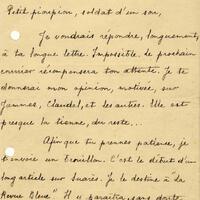 Petit pioupiou, soldat d'un sou,
Je voudrais répondre, longuement,
à ta longue lettre. Impossible. Le prochain
courrier récompensera ton attente. Je te
donnerai mon opinion, motivée, sur
Jammes, Claudel, et les autres. Elle est
presque la tienne, du reste...
Afin que tu prennes patience, je
t'envoie un brouillon. C'est le début d'un
long article sur Suarès. Je le destine à "la
Revue Bleue" Il y paraîtra, sans doute,